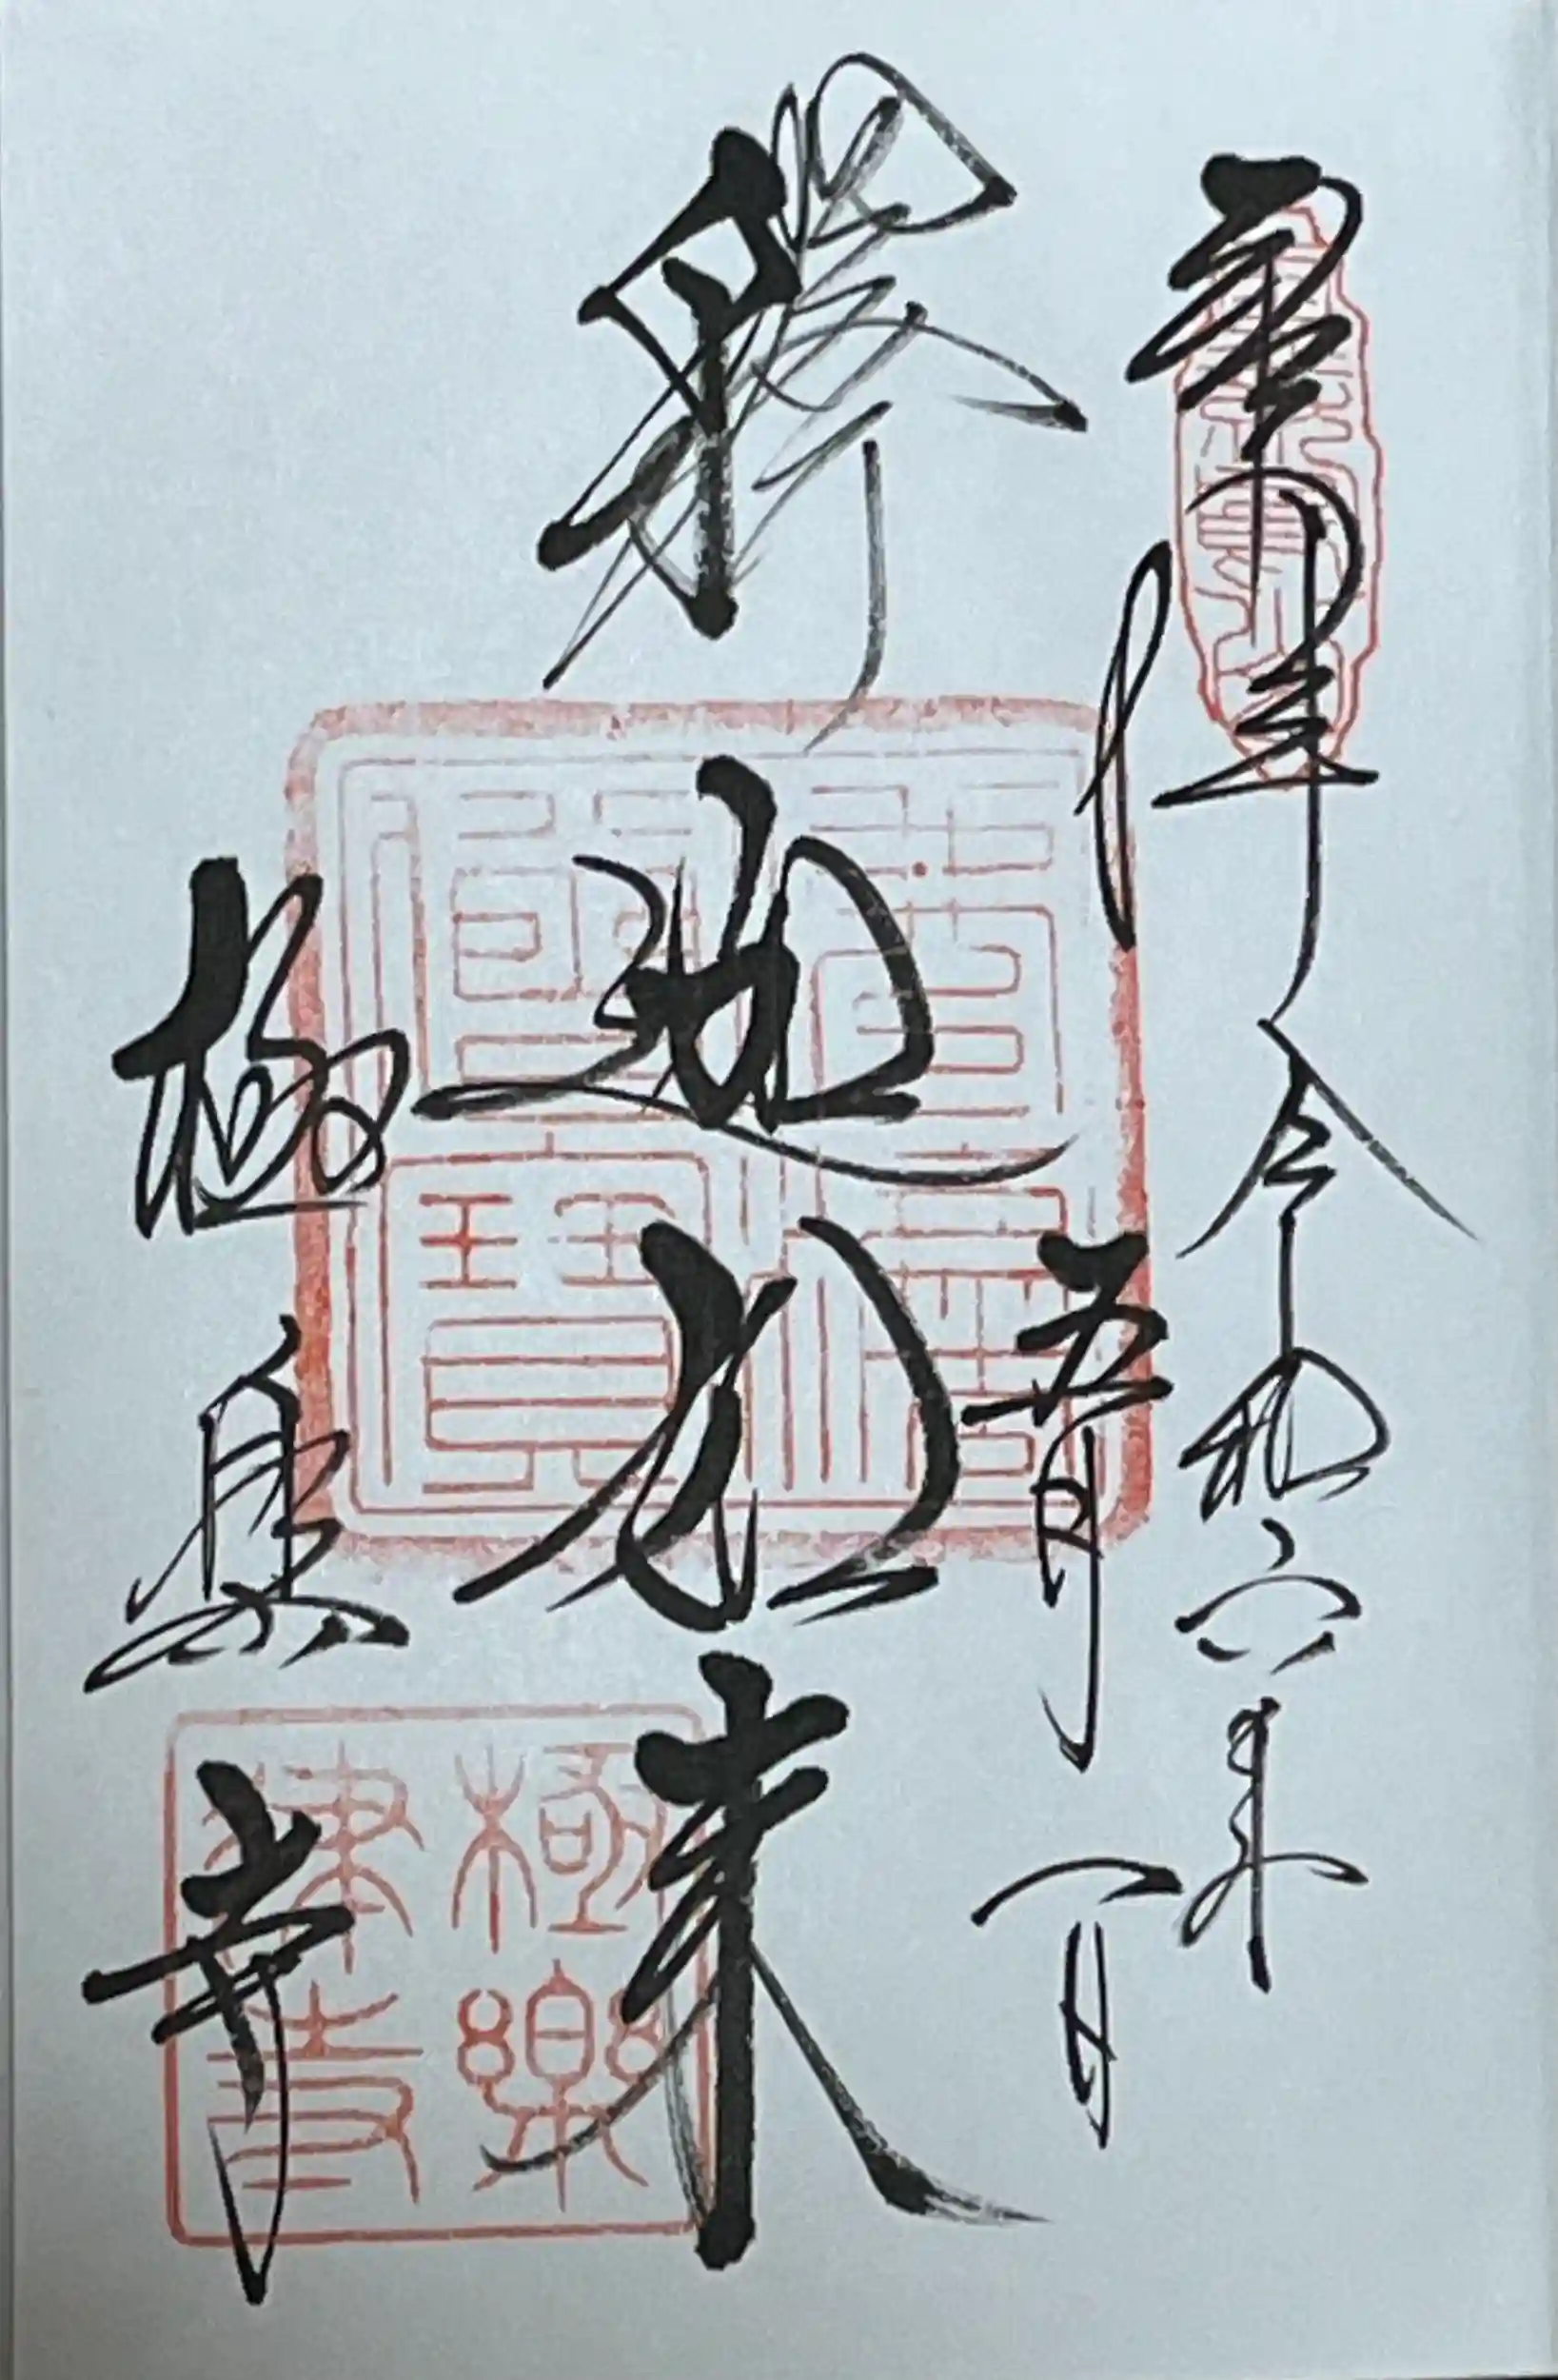 令和六年
五月一日
釋迦如来
極楽寺
極樂
律寺